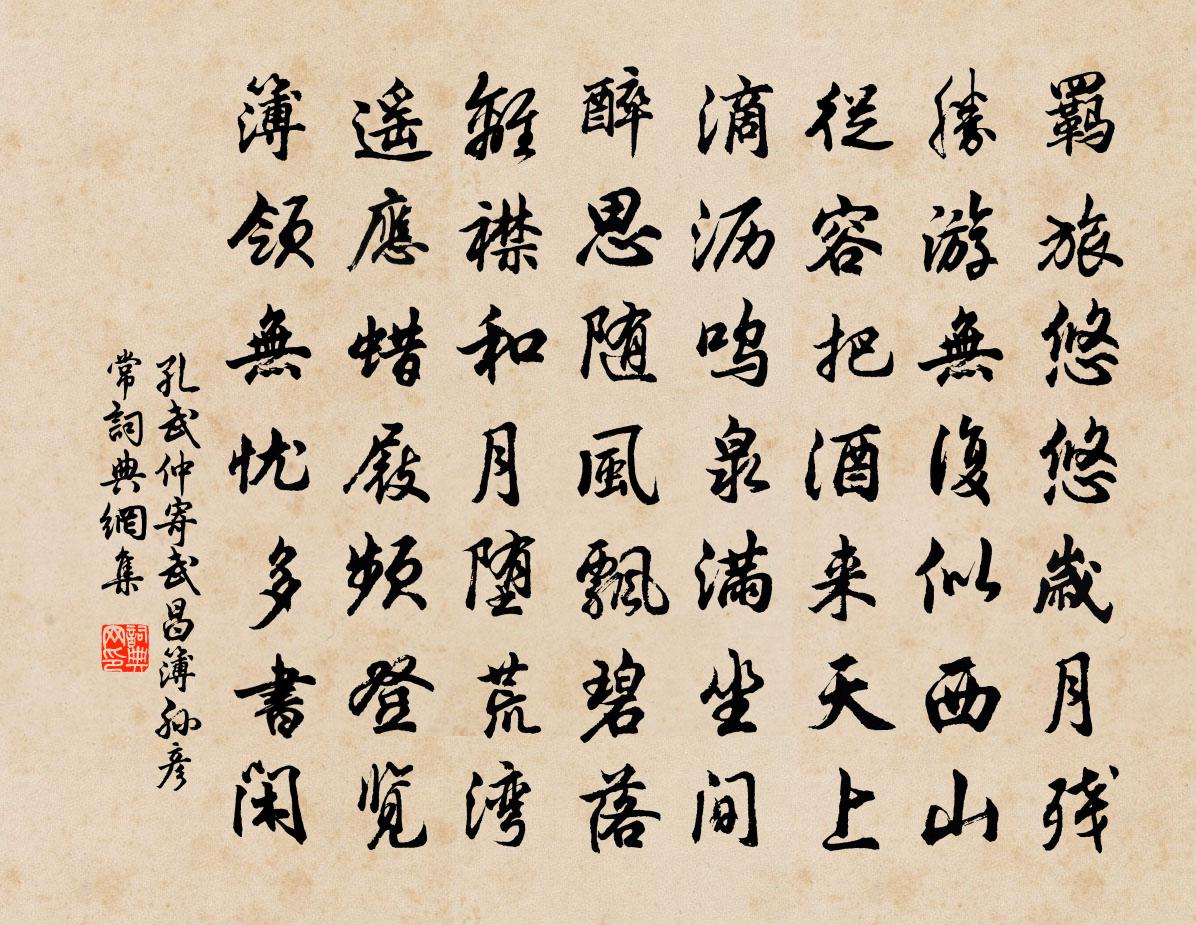 羁旅悠悠岁月残
勝游無復似西山
從容把酒来天上
滴沥鸣泉满坐间
醉思随風飘碧落
離襟和月堕荒湾
遥應蜡屐频登览
簿领無忧多書闲
孔武仲寄武昌簿孙彦
常詞典網集
詞典网印